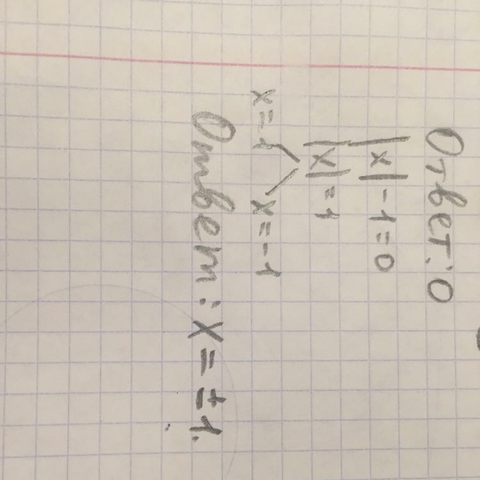 Ответ: 0
|x| - 1 = 0
|x| = 1
x = 1 x = -1
Ответ: x = ± 1.